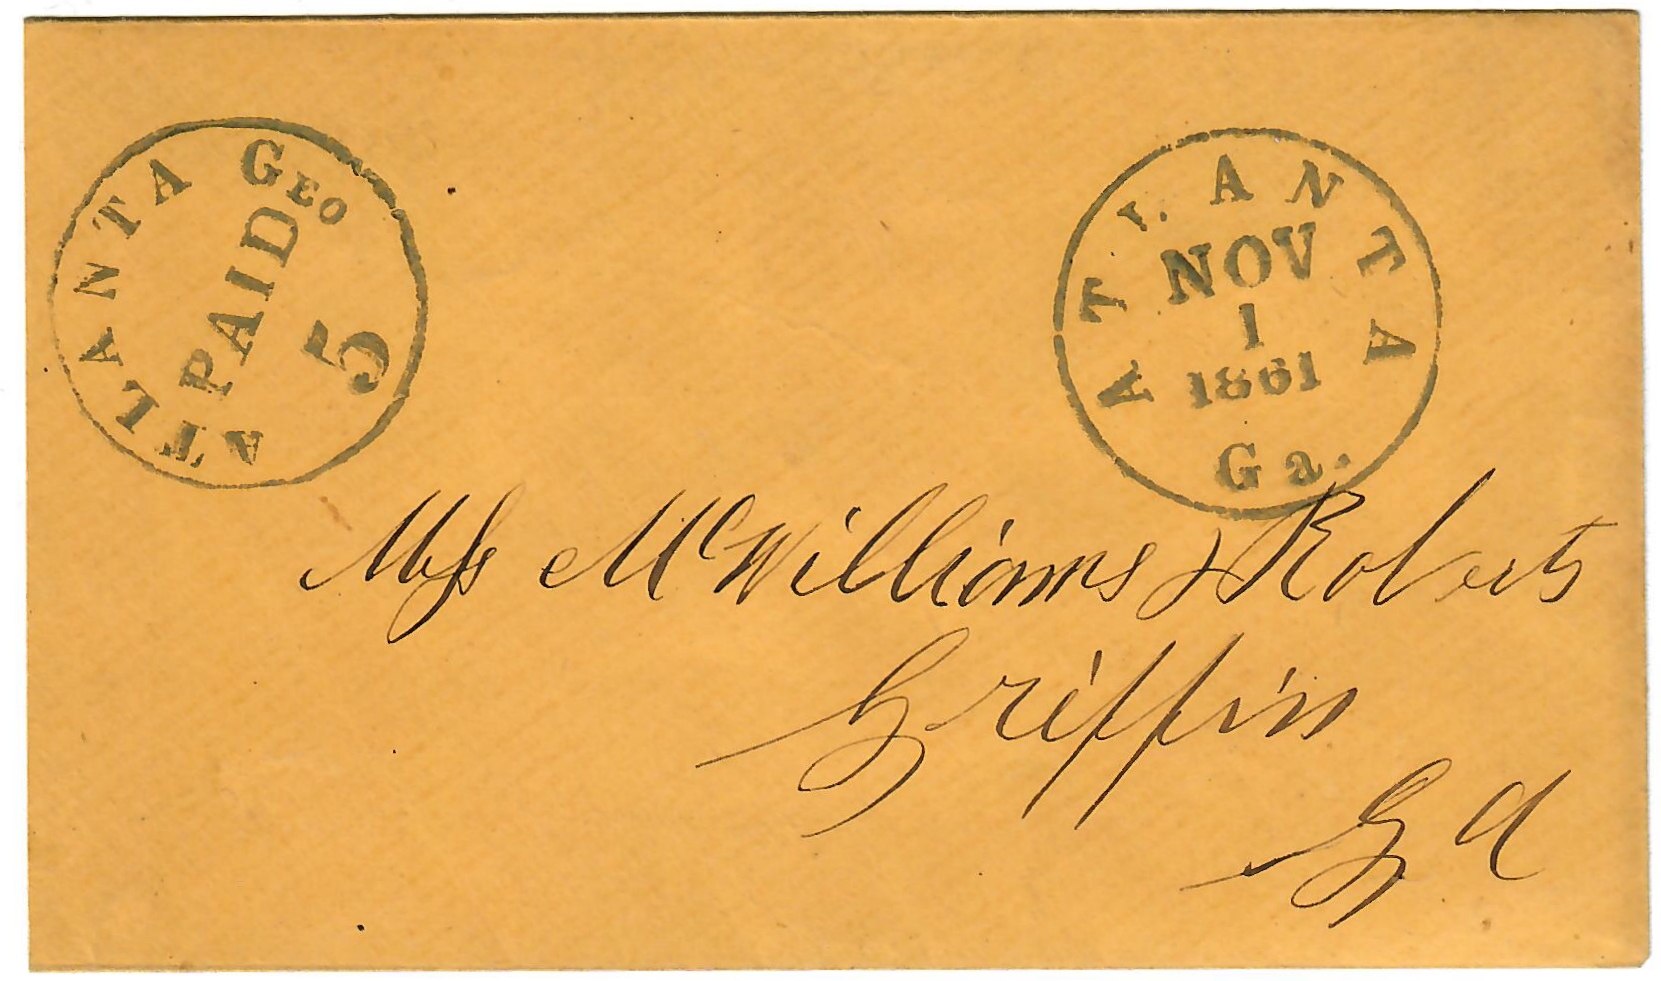 ATLANTA GEO
PAID
5
ATLANTA
NOV
1
1861
Ga.
Mess McWilliams & Roberts
Griffin
Ga